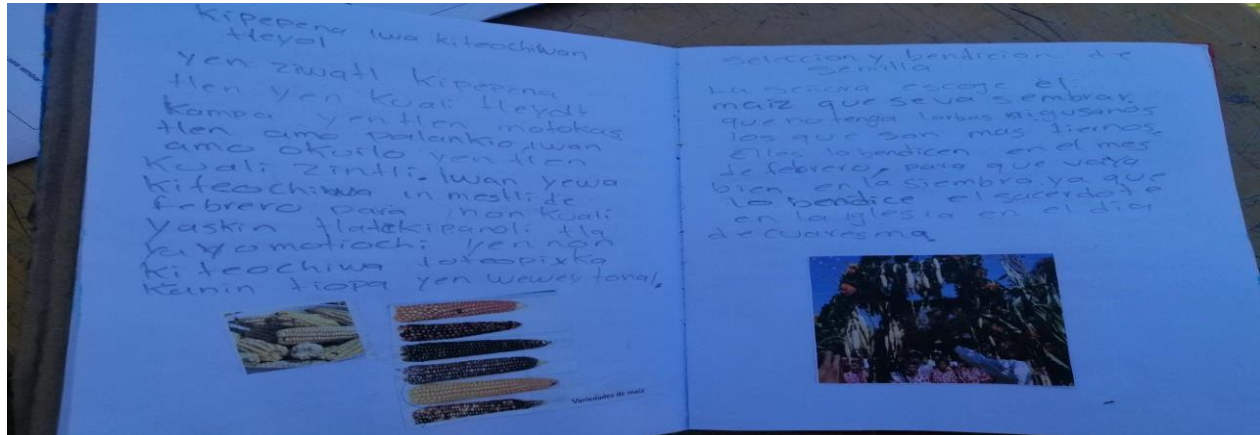 Kipepena iwa kiteochiwan
tleyol
yen ziwatl Kipepena
tlen yen Kuali tleyol
Kampa yentlen motokas
tlen amo palankio, iwan
amo okuilo yen tlen
Kuali zintli. Iwan yewa
Kiteochiwa in mestli de
febrero para inon Kuali
yaskin tlatekipanoli tla
ya yomotiochi yen non
Kiteochiwa toteopixko
Kanin tiopa yen wewey tonal.
Variedades de maíz
seleccion y bendicion de
semilla
La señora escoge el
maiz que se va sembrar,
que no tenga larbas ni gusanos
los que son mas tiernos.
Ellos lo bendicen en el mes
de febrero, para que vaya
bien en la siembra, ya que
lo bendice el sacerdote
en la iglesia en el dia
de cuaresma